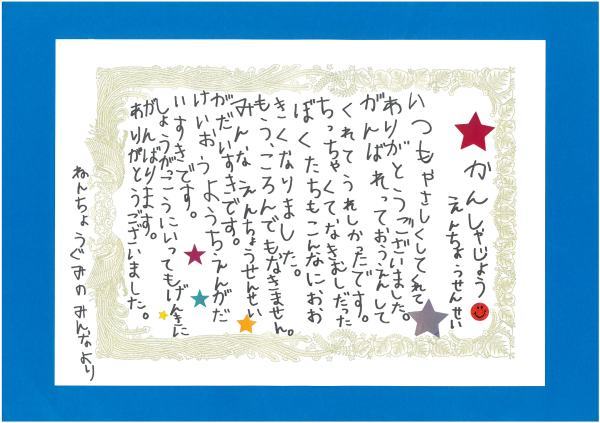 かんしゃじょう
えんちょうせんせい
いつもやさしくしてくれて
ありがとうございました。
がんばれっておうえんして
くれてうれしかったです。
ちっちゃくて、なきむしだった
ぼくたちもこんなにおお
きくなりました。
もう、ころんでもなきません。
みんなえんちょうせんせい
がだいすきです。
けいおうようちえんがだ
いすきです。
しょうがっこうにいってもげんきに
がんばります。
ありがとうございました。
ねんちょうぐみのみんなより